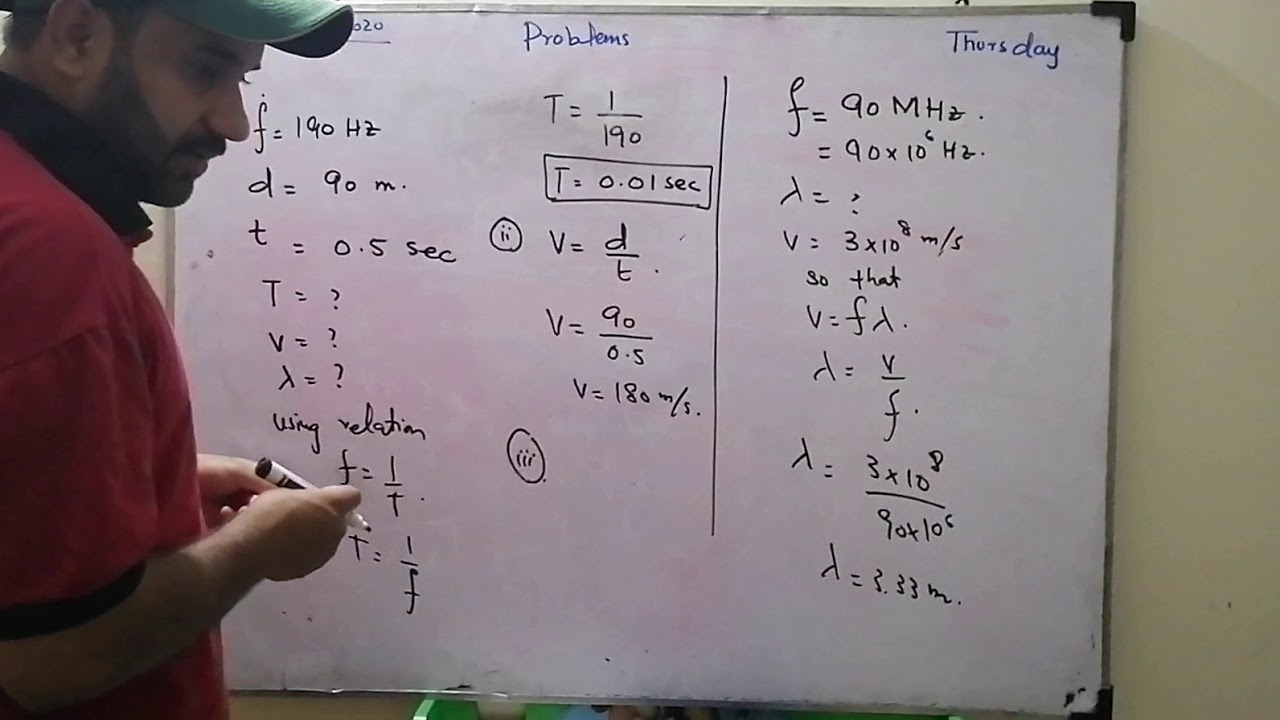 020
Problems
Thursday
f = 190 Hz
d = 90 m.
t = 0.5 sec
T = ?
v = ?
λ = ?
using relation
f = 1/T .
T = 1/f
T = 1/190
T = 0.01 sec
(ii) V = d/t .
V = 90/0.5
V = 180 m/s.
(iii)
f = 90 MHz.
= 90 × 10⁶ Hz.
λ = ?
V = 3×10⁸ m/s
so that
V = f λ.
λ = v/f .
λ = 3×10⁸/90×10⁶
λ = 3.33 m.